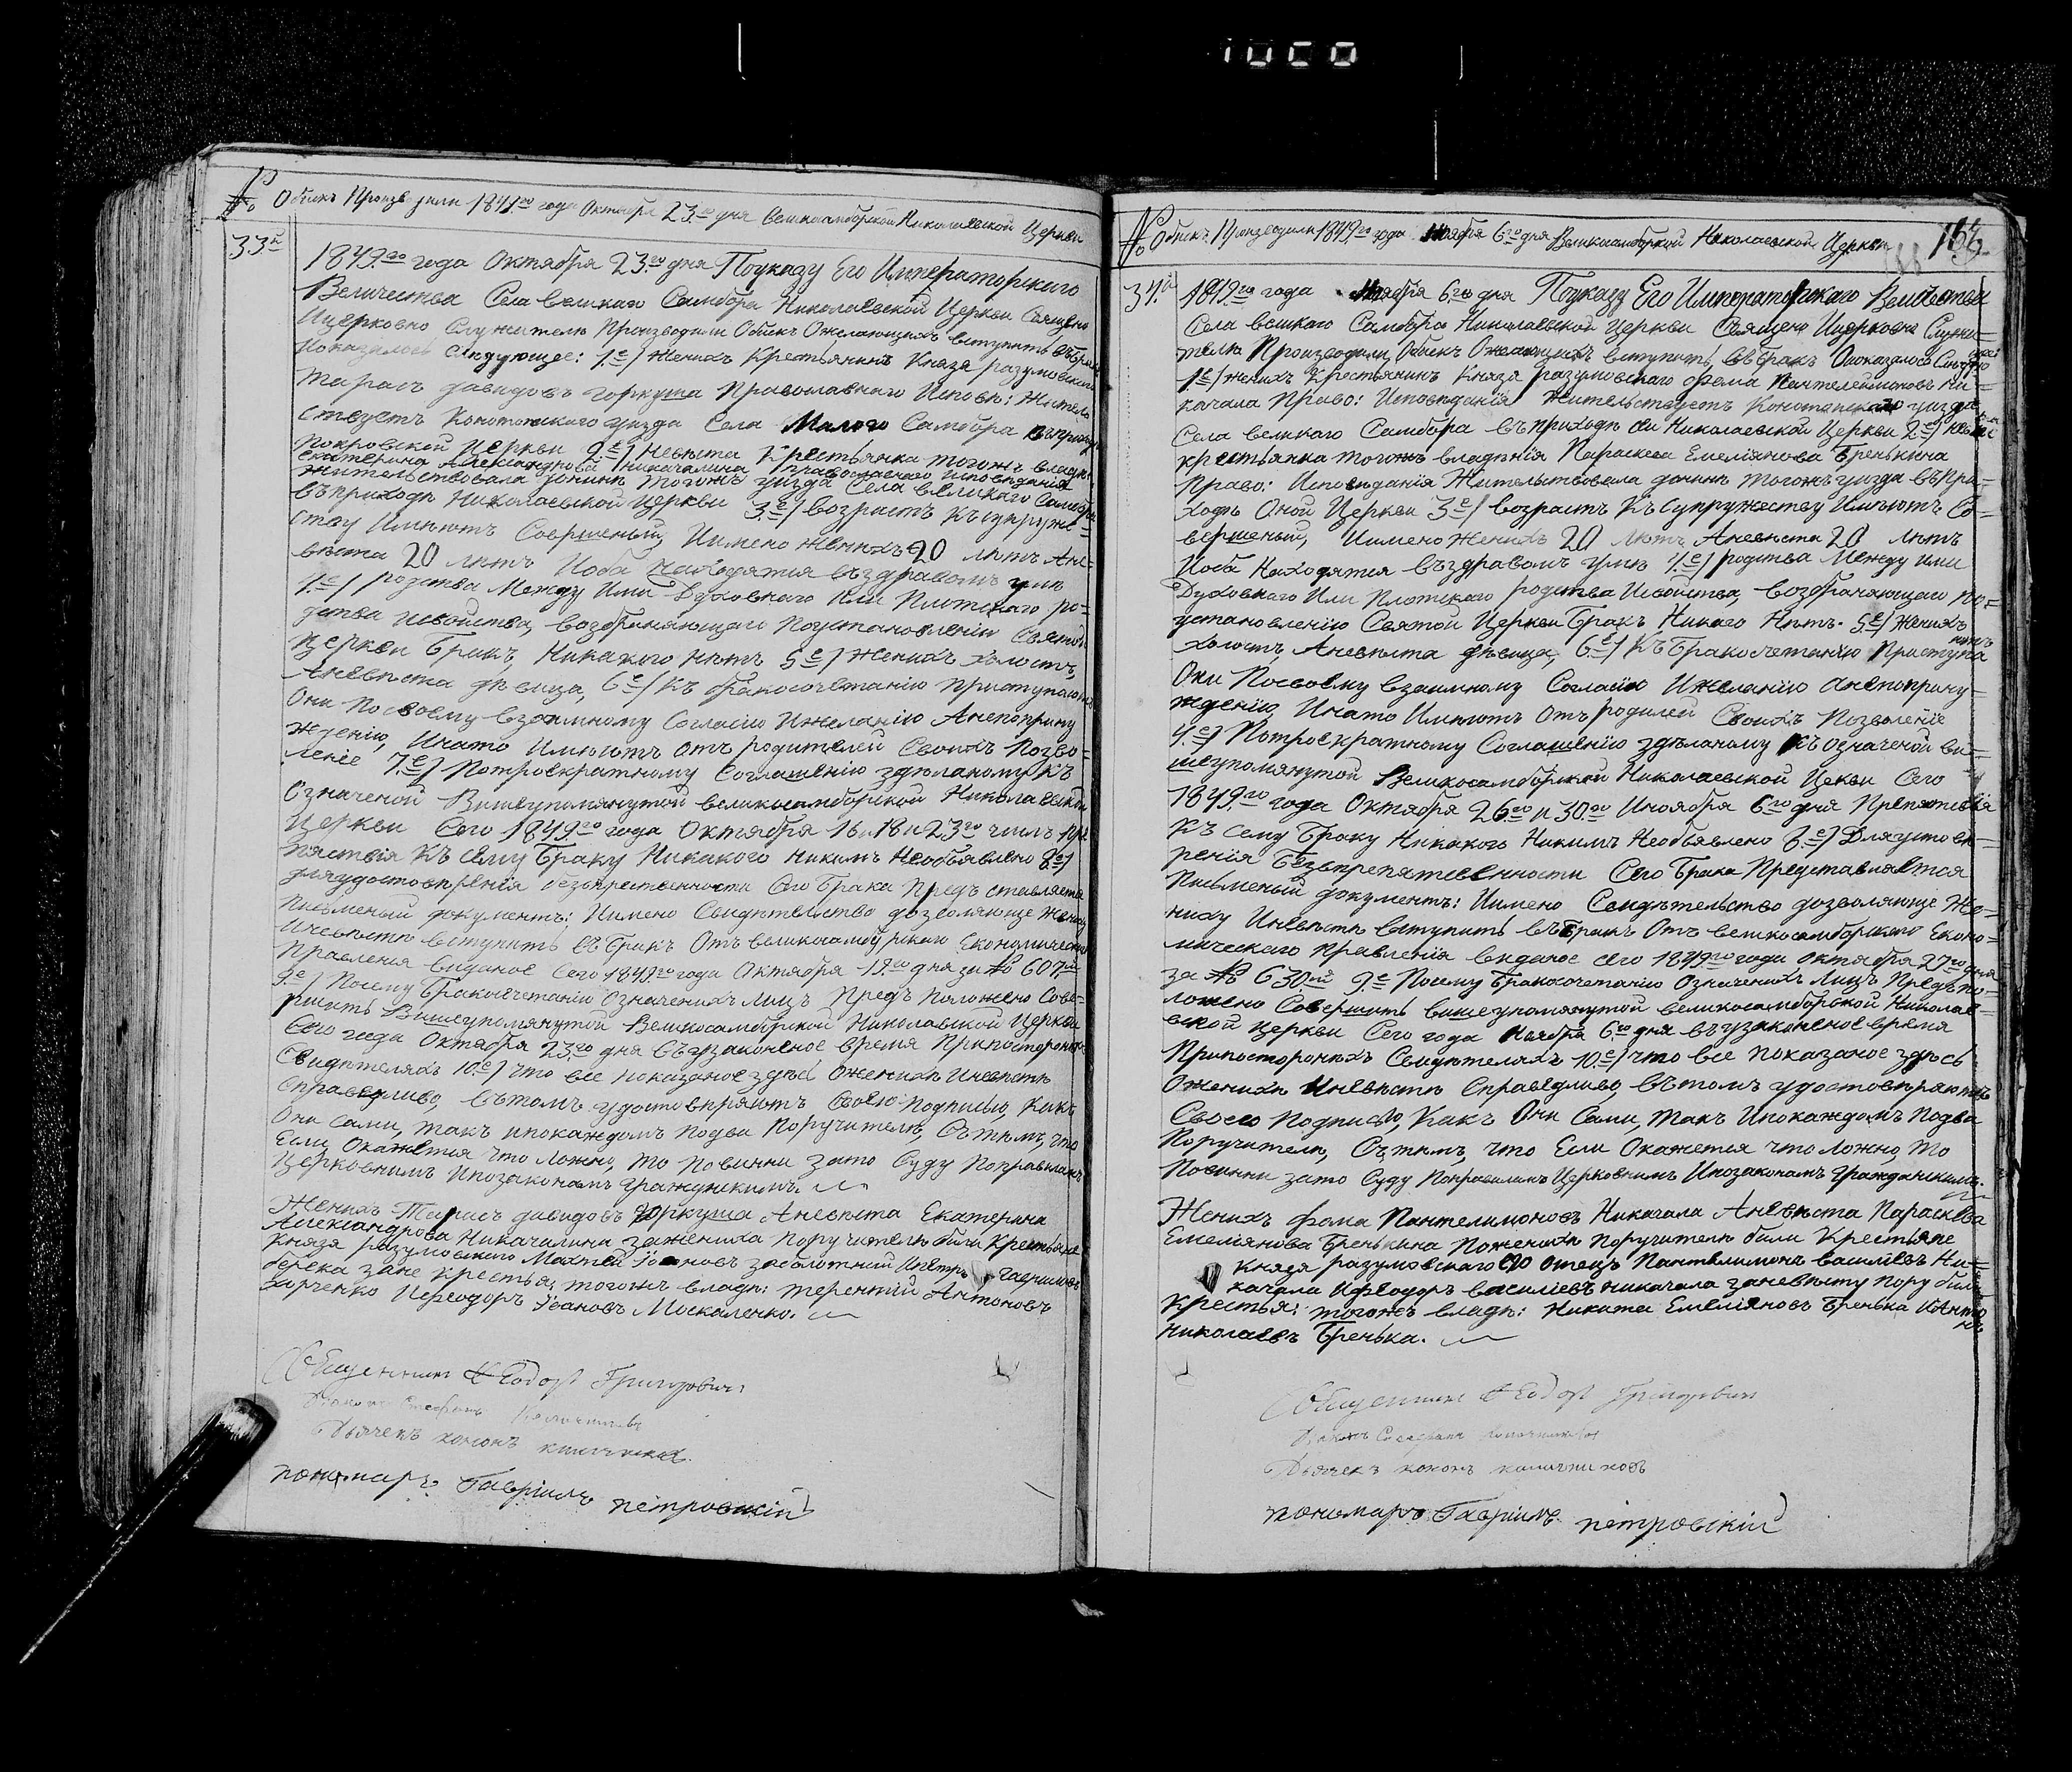 № Обыскъ Производили 1849го года Октября 23го дня Великосамборской Николаевской Церкви
33й
1849го года Октября 23го дня Поуказу Его Императорского
Величества Села великаго Самбора Николаевской Церкви Священо
Ицерковно Служители Производили Обыскъ Ожелающихъ вступить въбракъ
Ипоказалось Следующее: 1е/ Женихъ Крестьянинъ Князя разумовского
Тарасъ давидовъ горкуша Православнаго Исповѣ: Жител
ствуетъ Конотопского уизда Села Малого Самбора въприходѣ
Покровской Церкви 2е/ Невѣста Крестьянка тогожъ владѣн
Екатерина Александрова Никачалина православнаго Исповѣданія
Жительствовала донинѣ тогожъ уизда Села великаго Самбора
въприходѣ Николаевской Церкви 3е/ возрастъ Късупруже
ству Имѣютъ Совершеный, Иимено женихъ 20 лѣтъ Ане-
вѣста 20 лѣтъ Иоба находятся въздравомъ умѣ
4е/ родства Между Ими Духовнаго Или Плотскаго ро-
дства Исвойства, возбраняющаго Поустановленію Святой
Церкви Бракъ, Никакого нѣтъ 5е/ Женихъ холостъ,
Аневѣста дѣвица, 6е/ Къ бракосочетанію приступаютъ
Они Посвоему взаимному Согласію Ижеланію Анепоприну
жденію, Инато Имѣютъ отъ родителей Своихъ Позво-
леніе 7е/ Потроекратному Соглашенію здѣланому Къ
Означеной Вишеупомянутой великосамборской Николаевской
Церкви Сего 1849го года Октября 16и 18и 23го числъ пре
пяствія Къ Сему Браку Никакого никимъ Необъявлено 8е/
дляудостовѣренія безъпрепяственности Сего Брака Предъставляется
Писменый документъ: Иимено Свидѣтельство дозволяюще Жениху
Иневѣсте вступить въБракъ Отъ великосамборскаго Економическаго
Правленія виданое Сего 1849го года Октября 19го дня за № 607м
9е/ Посему Бракосочетаніе Означенихъ лицъ Предъ Положено Сове-
ршить Вишеупомянутой Великосамборской Николавской Церкви
Сего года Октября 23го дня въузаконеное время Припосторонихъ
Свидѣтеляхъ 10е/ что все показаное здѣсь Оженихѣ Иневѣстѣ
Справедливо, вътомъ удостовѣряютъ Своею Подписью, Какъ
Они Сами, такъ ипокаждомъ подва Поручителѣ, Сътѣмъ, что
Если Окажется что ложно, то повинни зато Суду Поправиламъ
Церковнимъ Ипозаконамъ Гражданскимъ.
Женихъ Тарасъ давидовъ Горкуша Аневѣста Екатерина
Александрова Никачалина зажениха поручителѣ били Крестьяне
Князя разумовского Матфей Івановъ заболотній Ипетръ Гавриловъ
берека зане Крестья: тогожъ владѣ: терентій Антоновъ
харченко Иреодоръ Івановъ Москаленко.
Священникъ Феодоръ Григорович
Дьячекъ кононъ
пономарь Гавріилъ петровскій
№ Обыскъ Производили 1849го года Ноября 6го дня Великосамборской Николаевской Церкви
34й
1849го года Ноября 6го дня Поуказу Его Императорскаго Величества
Села великаго Самбора Николаевской Церкви Священо Ицерковно Служи-
тели Производили Обыскъ Ожелающихъ вступить въ Бракъ Опоказалось Слѣдующее
1е/ женихъ Крестьянинъ Князя разумовского фома Пантелеймоновъ Ни-
качала Право: Исповѣданія Жительствуетъ Конотопскаго уизда
Села великаго Самбора въприходѣ Сей Николаевской Церкви 2е/ Невѣста
крестьянка тогожъ владѣнія Параскева Емеліянова Бренькина
Право: Исповѣданія Жительствовала донинѣ тогожъ уизда въпри-
ходѣ Оной Церкви 3е/ возрастъ Късупружеству Имѣютъ Со-
вершеный, Иимено Женихъ 20 лѣтъ Аневѣста 20 лѣтъ
Иоба Находятся въздравомъ умѣ 4е/ родства Между Ими
Духовнаго Или Плотскаго родства Исвойства, возбраняющаго По-
установленію Святой Церкви Бракъ Никаго Нѣтъ. 5е/ Женихъ
холостъ, Аневѣста дѣвица, 6е/ Къ Бракосочетанію Приступа
ютъ
Они Посвоему взаимному Согласію Ижеланію Анепоприну-
жденію Инато Имѣютъ Отъ родилей Своихъ Позволеніе
7е/ Потроекратному Соглашенію здѣланому Къ Означеной ви-
шеупомянутой Великосамборской Николаевской Цекви Сего
1849го года Октября 26го и 30го Иноября 6го дня Препятствія
Къ Сему Браку Никакого Никимъ Необъявлено 8е/ Дляудостовѣ-
ренія Безъпрепятственности Сего Брака Представляется
Письменый документъ: Иимено Свидѣтельство дозволяюще Же-
ниху Иневѣстѣ вступить въБракъ Отъ великосамборского Еконо-
мическаго правленія виданое сего 1849го года октября 27го дня
за № 630м 9е Посему Бракосочетаніе Означенихъ Лицъ Предъпо-
ложено Совершить вишеупомянутой великосамборской Николае-
вской церкви Сего года Ноября 6го дня въузаконеное время
Припосторонихъ Свидѣтеляхъ 10е/ что все показаное здѣсь
Оженихѣ Иневѣстѣ Справедливо, вътомъ удостовѣряютъ
Своею Подписью, Какъ Они Сами, такъ Ипокаждомъ Подва
Поручителѣ, Сътѣмъ, что Если Окажется что ложно, то
Повинни зато Суду Поправиламъ Церковнимъ Ипозаконамъ Гражданскимъ.
Женихъ фома Пантелимоновъ Никачала Аневѣста Параскева
Емеліянова Бренькина Поженихѣ Поручителѣ били Крестьяне
Князя разумовскаго Отецъ Пантелимонъ василіевъ Ни-
качала Ифеодоръ василіевъ никачала заневѣсту пору били
Крестья: тогожъ владѣ: Никита Емеліяновъ Бренька ИАнто
нъ
николаевъ Бренька.
Священникъ Феодоръ Григорович
Дьячекъ кононъ
пономарь Гавріилъ петровскій